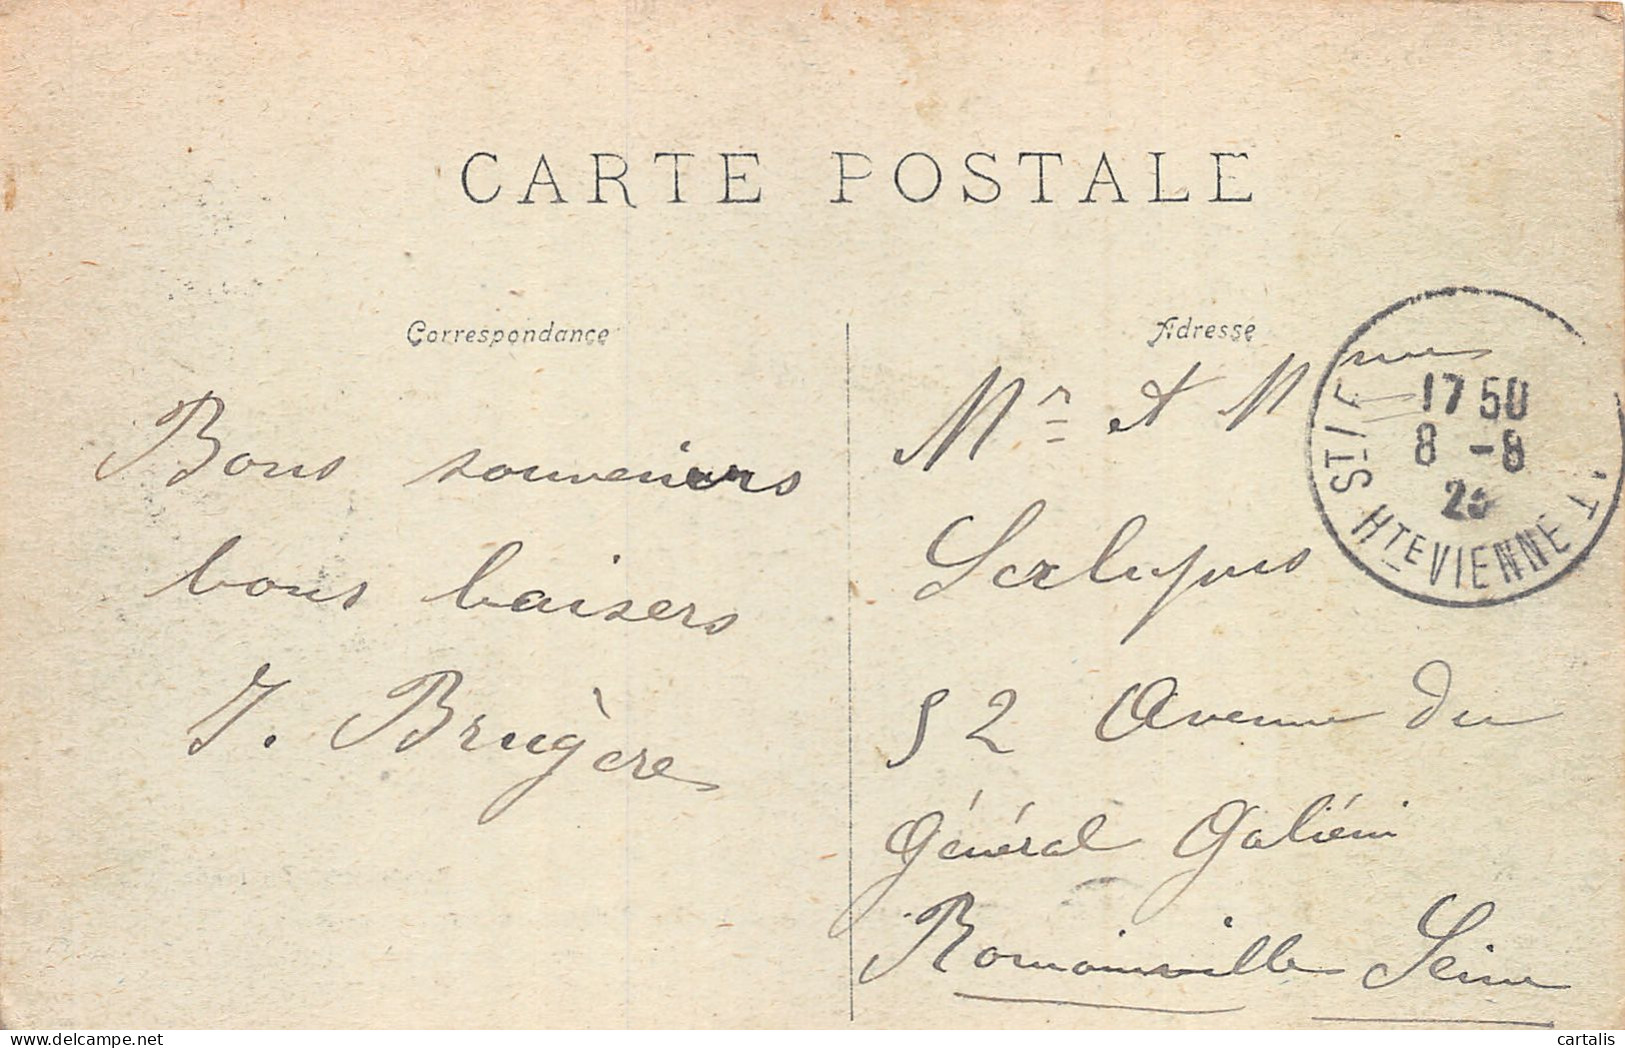 CARTE POSTALE
Correspondance
Bons souvenirs
bons baisers
J. Brugère
Adresse
Mr et M
52 Avenue du
Général Galiéni
Romainville Seine
17 50
8 - 8
HTE VIENNE
cartalis